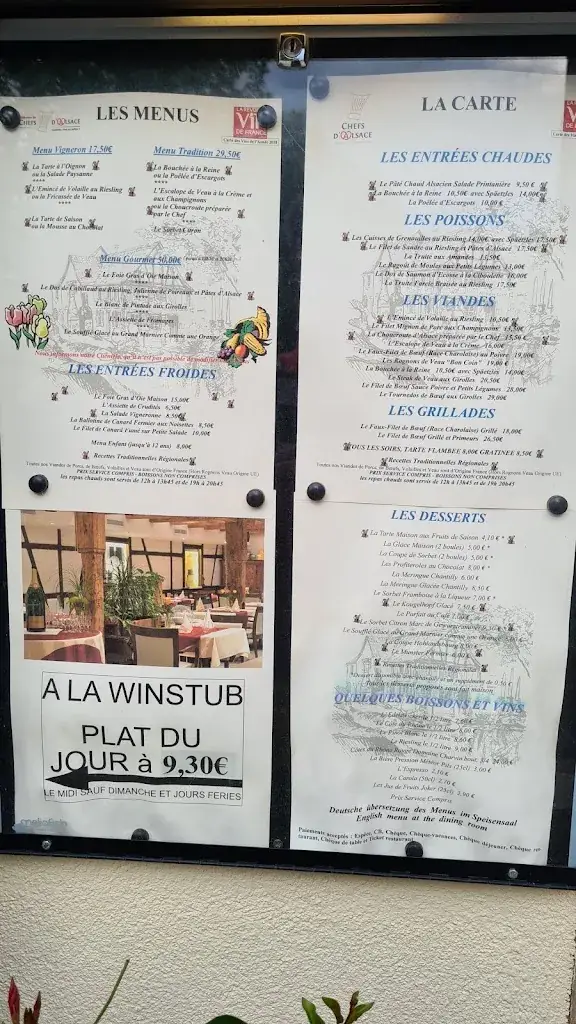 LES MENUS
CHEFS
D'ALSACE
DE FRANCE
Menu Vigneron 17,50€
La Tarte à l'Oignon
ou la Salade Paysanne
****
L'Emincé de Volaille au Riesling
ou la Fricassée de Veau
****
La Tarte de Saison
ou la Mousse au Chocolat
Menu Tradition 29,50€
La Bouchée à la Reine
ou la Poêlée d'Escargots
****
L'Escalope de Veau à la Crème et
aux Champignons
ou la Choucroute préparée
par le Chef
****
Le Sorbet Citron
Menu Gourmet 50,00€
Le Foie Gras d'Oie Maison
****
Le Dos de Cabillaud au Riesling, Julienne de Poireaux et Pâtes d'Alsace
****
Le Blanc de Pintade aux Girolles
****
L'Assiette de Fromages
****
Le Soufflé Glacé au Grand Marnier Comme une Orange
Nous informons notre Clientèle qu'il n'est pas possible de modifier
LES ENTRÉES FROIDES
Le Foie Gras d'Oie Maison 15,00€
L'Assiette de Crudités 6,50€
La Salade Vigneronne 8,50€
La Ballotine de Canard Fermier aux Noisettes 8,50€
Le Filet de Canard Fumé sur Petite Salade 10,00€
Menu Enfant (jusqu'à 12 ans) 8,00€
Recettes Traditionnelles Régionales
Toutes nos Viandes de Porcs, de Boeufs, Volailles et Veau sont d'Origine France (Hors Rognons Veau Origine UE)
PRIX SERVICE COMPRIS - BOISSONS NON COMPRISES
les repas chauds sont servis de 12h à 13h45 et de 19h à 20h45
A LA WINSTUB
PLAT DU
JOUR à 9,30€
LE MIDI SAUF DIMANCHE ET JOURS FERIES
LA CARTE
CHEFS
D'ALSACE
LES ENTRÉES CHAUDES
Le Pâté Chaud Alsacien Salade Printanière 9,50 €
La Bouchée à la Reine 10,50€ avec Späetzles 14,00€
La Poêlée d'Escargots 10,00 €
LES POISSONS
Les Cuisses de Grenouilles au Riesling 14,00€ avec Späetzles 17,50€
Le Filet de Sandre au Riesling et Pâtes d'Alsace 17,50€
La Truite aux Amandes 13,50€
Le Ragoût de Moules aux Petits Légumes 13,00€
Le Dos de Saumon d'Ecosse à la Ciboulette 16,00€
La Truite Farcie Braisée au Riesling 17,50€
LES VIANDES
L'Emincé de Volaille au Riesling 10,50€
Le Filet Mignon de Porc aux Champignons 15,50€
La Choucroute d'Alsace préparée par le Chef 15,50€
L'Escalope de Veau à la Crème 16,00€
Le Faux-Filet de Bœuf (Race Charolaise) au Poivre 19,00€
Les Rognons de Veau "Bon Coin" 19,00€
La Bouchée à la Reine 10,50€ avec Spaetzles 14,00€
Le Steak de Veau aux Girolles 20,50€
Le Filet de Bœuf Sauce Poivre et Petits Légumes 28,00€
Le Tournedos de Bœuf aux Girolles 29,00€
LES GRILLADES
Le Faux-Filet de Bœuf (Race Charolaise) Grillé 18,00€
Le Filet de Bœuf Grillé et Primeurs 26,50€
TOUS LES SOIRS, TARTE FLAMBEE 8,00€ GRATINEE 8,50€
Recettes Traditionnelles Régionales
Toutes nos Viandes de Porcs, de Bœufs, Volailles et Veau sont d'Origine France (Hors Rognons Veau Origine UE)
PRIX SERVICE COMPRIS - BOISSONS NON COMPRISES
les repas chauds sont servis de 12h à 13h45 et de 19h à 20h45
LES DESSERTS
La Tarte Maison aux Fruits de Saison 4,10 € *
La Glace Maison (2 boules) 5,00 € *
La Coupe de Sorbet (2 boules) 5,00 € *
Les Profiteroles au Chocolat 8,00 € *
La Meringue Chantilly 6,00 €
La Meringue Glacée Chantilly 6,50 €
Le Sorbet Framboise à la Liqueur 7,00 € *
Le Kougelhopf Glacé 7,50 € *
Le Parfait au
Le Sorbet Citron Marc de Gewurztraminer
Le Soufflé Glacé au Grand Marnier comme une Orange
La Coupe
Le Munster Fermier
Recettes Traditionnelles Régionales
QUELQUES BOISSONS ET VINS
Le Pinot Blanc le 1/2 litre 8,00 €
Le Riesling le 1/2 litre 9,00 €
La Bière Pression Météor Pils (25cl)
L'Espresso 2,10 €
La Carola (50cl) 2,10 €
Les Jus de Fruits Joker (25cl) 2,90 €
Prix Service Compris
Deutsche übersetzung des Menus im Speisensaal
English menu at the dining room
Paiements acceptés : Espèce, CB, Chèque, Chèque-vacances, Chèque déjeuner, Chèque res-
taurant, Chèque de table et Ticket restaurant.